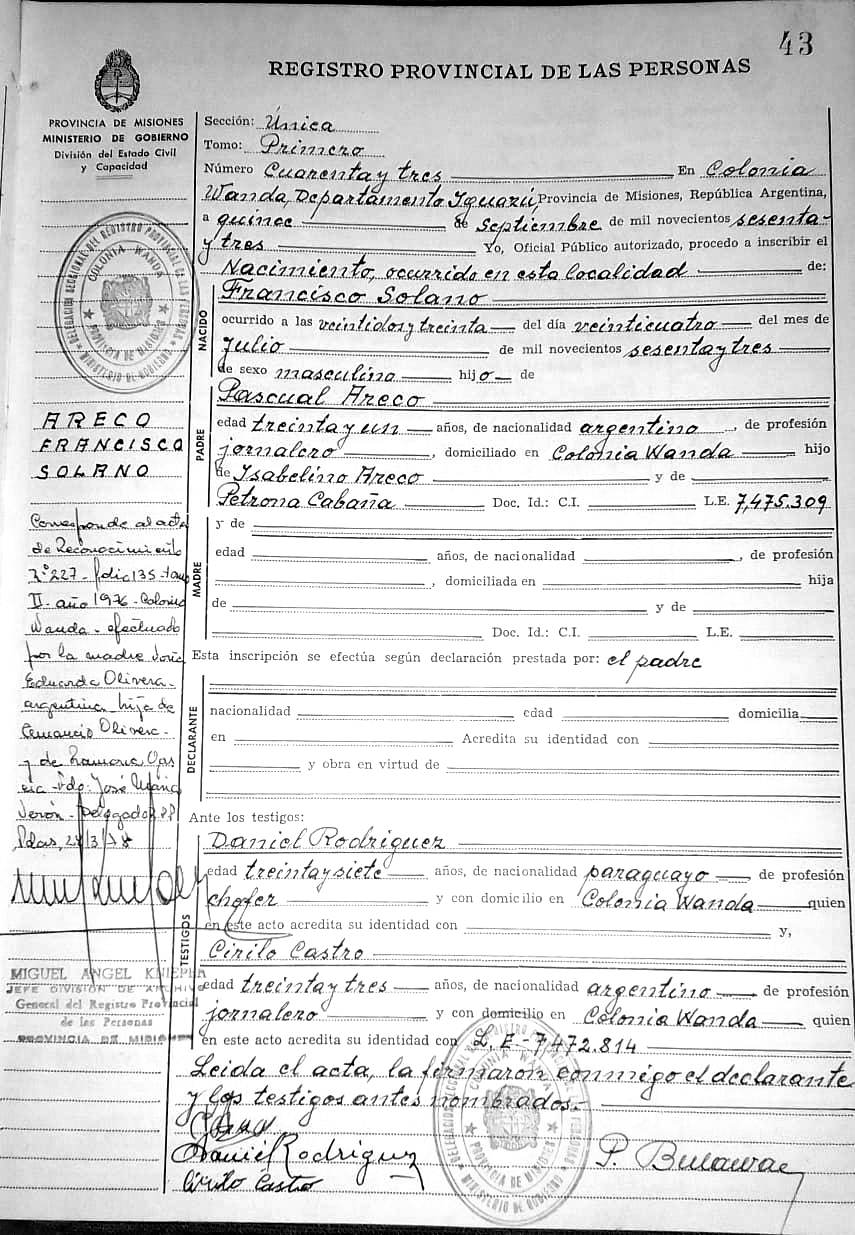 43
REGISTRO PROVINCIAL DE LAS PERSONAS
PROVINCIA DE MISIONES
MINISTERIO DE GOBIERNO
División del Estado Civil
y Capacidad
Sección: Única
Tomo: Primero
Número Cuarenta y tres En Colonia
Wanda, Departamento Iguazú, Provincia de Misiones, República Argentina,
a quince de Septiembre de mil novecientos sesenta
y tres Yo, Oficial Público autorizado, procedo a inscribir el
Nacimiento, ocurrido en esta localidad de:
NACIDO
Francisco Solano
ocurrido a las veintidos y treinta del día veinticuatro del mes de
Julio de mil novecientos sesenta y tres
de sexo masculino hijo de
PADRE
Pascual Areco
edad treinta y un años, de nacionalidad argentino, de profesión
jornalero, domiciliado en Colonia Wanda hijo
de Isabelino Areco y de
Petrona Cabaña Doc. Id.: C.I. L.E. 7,475.309
MADRE
y de
edad años, de nacionalidad , de profesión
, domiciliada en hija
de y de
Doc. Id.: C.I. L.E.
Esta inscripción se efectúa según declaración prestada por: el padre
DECLARANTE
nacionalidad edad domicilia
en Acredita su identidad con
y obra en virtud de
Ante los testigos:
TESTIGOS
Daniel Rodriguez
edad treinta y siete años, de nacionalidad paraguayo de profesión
chofer y con domicilio en Colonia Wanda quien
en este acto acredita su identidad con y,
Cirilo Castro
edad treinta y tres años, de nacionalidad argentino de profesión
jornalero y con domicilio en Colonia Wanda quien
en este acto acredita su identidad con L.E-7,472.814
Leida el acta, la firmaron conmigo el declarante
y los testigos antes nombrados.-
Daniel Rodriguez
Cirilo Castro
DELEGACION SECCIONAL DEL REGISTRO PROVINCIAL DE LAS PERSONAS
COLONIA WANDA
PROVINCIA DE MISIONES
MINISTERIO DE GOBIERNO
ARECO
FRANCISCO
SOLANO
Corresponde al acta
de Reconocimiento
N° 227 - folio 135 - tomo
II - año 1976 - Colonia
Wanda - efectuado
por la madre doña
Eduarda Olivera -
argentina hija de
Olivera -
y de Ramona
- Fdo: José Maria
Verón - Delegado
Pdas,
MIGUEL ANGEL
JEFE DIVISION DE ARCHIVO
General del Registro Provincial
de las Personas
PROVINCIA DE MISIONES